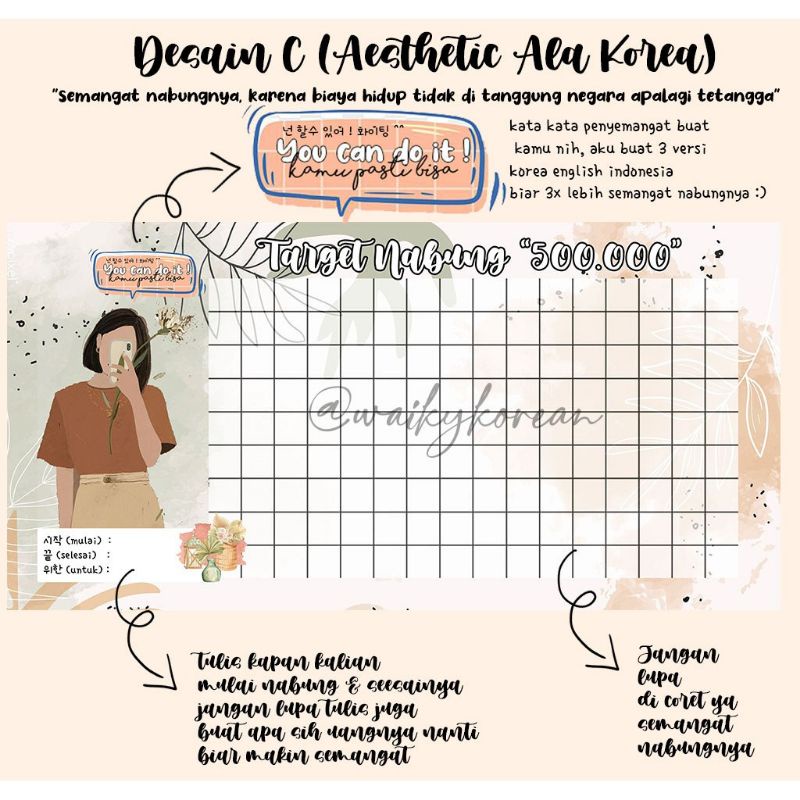 Desain C (Aesthetic Ala Korea)
"Semangat nabungnya, karena biaya hidup tidak di tanggung negara apalagi tetangga"
넌 할수 있어 ! 와이팅 ^^
You can do it !
kamu pasti bisa
kata kata penyemangat buat
kamu nih, aku buat 3 versi
korea english indonesia
biar 3x lebih semangat nabungnya :)
넌 할수 있어 ! 와이팅 ^^
You can do it !
kamu pasti bisa
Target Nabung "500.000"
@waikykorean
시작 (mulai) :
끝 (selesai) :
위한 (untuk) :
Tulis kapan kalian
mulai nabung & seesainya
jangan lupa tulis juga
buat apa sih uangnya nanti
biar makin semangat
Jangan
lupa
di coret ya
semangat
nabungnya